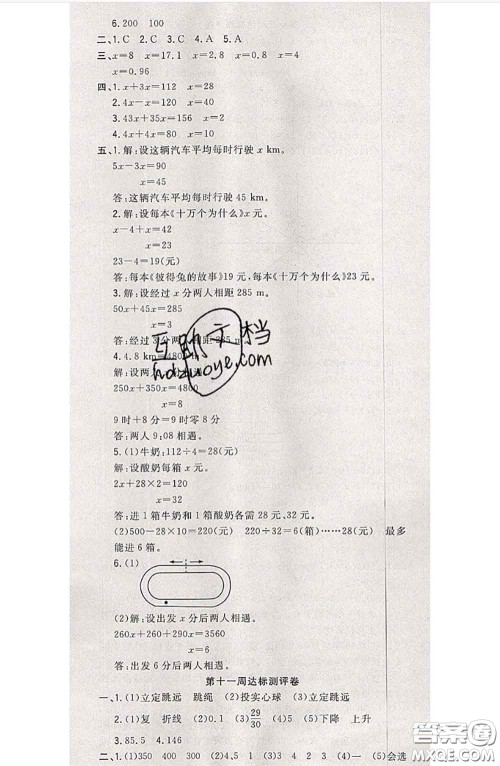 6.200 100
二、1.C 2.C 3.C 4.A 5.A
三、x=8 x=17.1 x=2.8 x=0.8 x=4.8
x=0.96
四、1.x+3x=112 x=28
2.4x-x=120 x=40
3.43x+35x=156 x=2
4.4x+4x=80 x=10
五、1.解:设这辆汽车平均每时行驶 x km。
5x-3x=90
x=45
答:这辆汽车平均每时行驶 45 km。
2.解:设每本《十万个为什么》x 元。
x-4=42
x=23
23-4=19(元)
答:每本《彼得兔的故事》19 元,每本《十万个为什么》23 元。
3.解:设经过 x 分两人相距 285 m。
50x+45x=285
x=3
答:经过 3 分两人相距 285 m。
4.4.8 km=4800 m
解:设两人 x 分
250x+350x=4800
x=8
9 时+8 分=9 时零 8 分
答:两人 9:08 相遇。
5.(1)牛奶:112÷4=28(元)
解:设酸奶每箱 x 元。
2x+28×2=120
x=32
答:进 1 箱牛奶和 1 箱酸奶各需 28 元、32 元。
(2)500-28×10=220(元) 220÷32=6(箱)……28(元) 最多
能进 6 箱。
6.(1)
(2)解:设出发 x 分后两人相遇。
260x+260+290x=3560
x=6
答:出发 6 分后两人相遇。
第十一周达标测评卷
一、1.(1)立定跳远 跳绳 (2)投实心球 (3)立定跳远
2.(1)复 折线 (2)0.1 (3)29/30 (4)5 (5)下降 上升
3.85.5 4.146
二、1.(1)350 400 300 (2)4.5 1 (3)3 4 2 3 (4)一 (5)会选
互助文档
hdzuoye.com
作业精灵